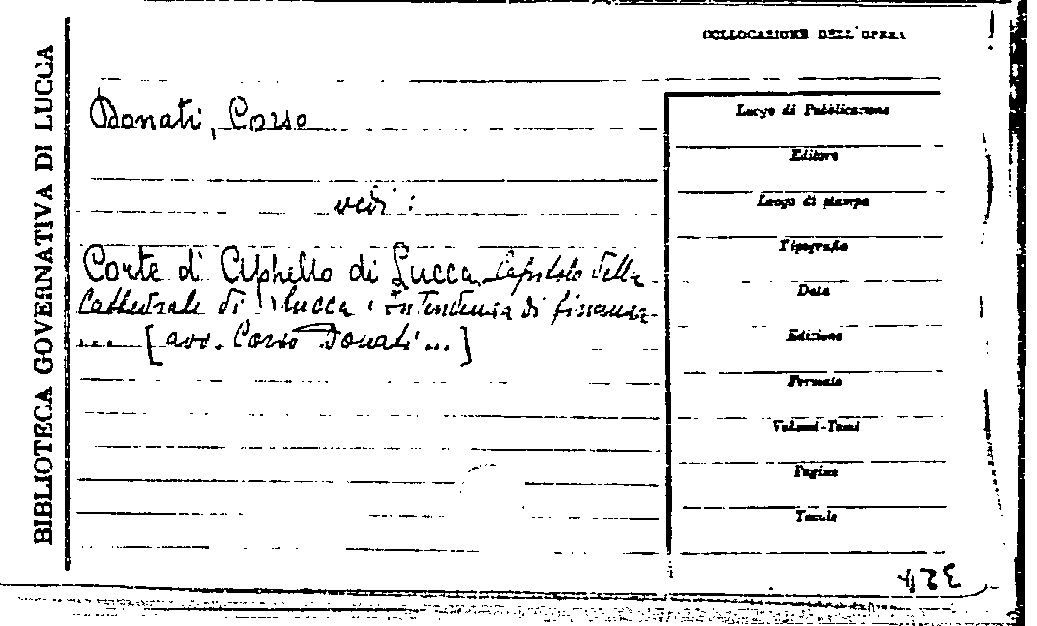 COLLOCAZIONE DELL'OPERA
BIBLIOTECA GOVERNATIVA DI LUCCA
Donati, Corso
vedi:
Corte di Appello di Lucca. Capitolo della
Cattedrale di Lucca e Intendenza di finanza
... [avv. Corso Donati...]
Luogo di Pubblicazione
Editore
Luogo di stampa
Tipografia
Data
Edizione
Formato
Volumi-Tomi
Pagine
Tavole